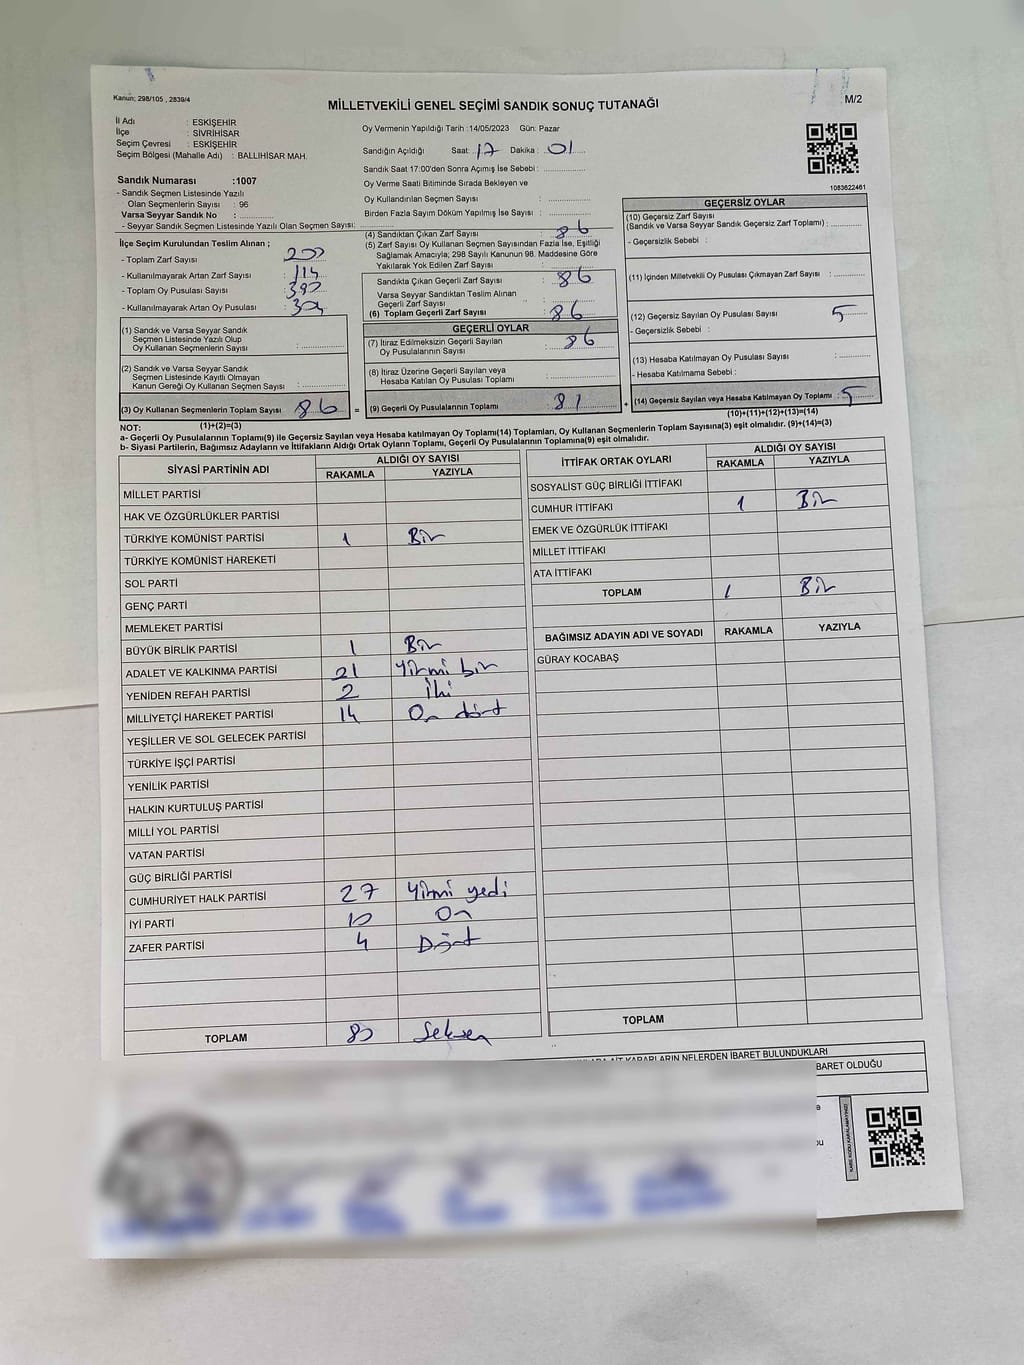 Kanun; 298/105 , 2839/4
MİLLETVEKİLİ GENEL SEÇİMİ SANDIK SONUÇ TUTANAĞI
M/2
İl Adı : ESKİŞEHİR
İlçe : SİVRİHİSAR
Seçim Çevresi : ESKİŞEHİR
Seçim Bölgesi (Mahalle Adı) : BALLIHİSAR MAH.
Oy Vermenin Yapıldığı Tarih :14/05/2023 Gün: Pazar
Sandığın Açıldığı Saat: 17 Dakika : 01
Sandık Saat 17:00'den Sonra Açımış İse Sebebi :
Oy Verme Saati Bitiminde Sırada Bekleyen ve
Oy Kullandırılan Seçmen Sayısı :
Birden Fazla Sayım Döküm Yapılmış İse Sayısı :
1083622461
Sandık Numarası :1007
- Sandık Seçmen Listesinde Yazılı
Olan Seçmenlerin Sayısı : 96
Varsa Seyyar Sandık No :
- Seyyar Sandık Seçmen Listesinde Yazılı Olan Seçmen Sayısı:
İlçe Seçim Kurulundan Teslim Alınan ;
- Toplam Zarf Sayısı : 200
- Kullanılmayarak Artan Zarf Sayısı : 114
- Toplam Oy Pusulası Sayısı : 390
- Kullanılmayarak Artan Oy Pusulası : 304
(1) Sandık ve Varsa Seyyar Sandık
Seçmen Listesinde Yazılı Olup
Oy Kullanan Seçmenlerin Sayısı :
(2) Sandık ve Varsa Seyyar Sandık
Seçmen Listesinde Kayıtlı Olmayan
Kanun Gereği Oy Kullanan Seçmen Sayısı :
(3) Oy Kullanan Seçmenlerin Toplam Sayısı 86 =
(4) Sandıktan Çıkan Zarf Sayısı : 86
(5) Zarf Sayısı Oy Kullanan Seçmen Sayısından Fazla İse, Eşitliği
Sağlamak Amacıyla; 298 Sayılı Kanunun 98. Maddesine Göre
Yakılarak Yok Edilen Zarf Sayısı :
Sandıkta Çıkan Geçerli Zarf Sayısı : 86
Varsa Seyyar Sandıktan Teslim Alınan
Geçerli Zarf Sayısı :
(6) Toplam Geçerli Zarf Sayısı : 86
GEÇERLİ OYLAR
(7) İtiraz Edilmeksizin Geçerli Sayılan
Oy Pusulalarının Sayısı : 86
(8) İtiraz Üzerine Geçerli Sayılan veya
Hesaba Katılan Oy Pusulası Toplamı :
(9) Geçerli Oy Pusulalarının Toplamı : 81 +
GEÇERSİZ OYLAR
(10) Geçersiz Zarf Sayısı
(Sandık ve Varsa Seyyar Sandık Geçersiz Zarf Toplamı) :
- Geçersizlik Sebebi :
(11) İçinden Milletvekili Oy Pusulası Çıkmayan Zarf Sayısı :
(12) Geçersiz Sayılan Oy Pusulası Sayısı : 5
- Geçersizlik Sebebi :
(13) Hesaba Katılmayan Oy Pusulası Sayısı :
- Hesaba Katılmama Sebebi :
(14) Geçersiz Sayılan veya Hesaba Katılmayan Oy Toplamı : 5
NOT: (1)+(2)=(3)
(10)+(11)+(12)+(13)=(14)
a- Geçerli Oy Pusulalarının Toplamı(9) ile Geçersiz Sayılan veya Hesaba katılmayan Oy Toplamı(14) Toplamları, Oy Kullanan Seçmenlerin Toplam Sayısına(3) eşit olmalıdır. (9)+(14)=(3)
b- Siyasi Partilerin, Bağımsız Adayların ve İttifakların Aldığı Ortak Oyların Toplamı, Geçerli Oy Pusulalarının Toplamına(9) eşit olmalıdır.
SİYASİ PARTİNİN ADI
ALDIĞI OY SAYISI
RAKAMLA YAZIYLA
MİLLET PARTİSİ
HAK VE ÖZGÜRLÜKLER PARTİSİ
TÜRKİYE KOMÜNİST PARTİSİ 1 Bir
TÜRKİYE KOMÜNİST HAREKETİ
SOL PARTİ
GENÇ PARTİ
MEMLEKET PARTİSİ
BÜYÜK BİRLİK PARTİSİ 1 Bir
ADALET VE KALKINMA PARTİSİ 21 Yirmi bir
YENİDEN REFAH PARTİSİ 2 İki
MİLLİYETÇİ HAREKET PARTİSİ 14 On dört
YEŞİLLER VE SOL GELECEK PARTİSİ
TÜRKİYE İŞÇİ PARTİSİ
YENİLİK PARTİSİ
HALKIN KURTULUŞ PARTİSİ
MİLLİ YOL PARTİSİ
VATAN PARTİSİ
GÜÇ BİRLİĞİ PARTİSİ
CUMHURİYET HALK PARTİSİ 27 Yirmi yedi
İYİ PARTİ 10 On
ZAFER PARTİSİ 4 Dört
TOPLAM 80 Seksen
İTTİFAK ORTAK OYLARI
ALDIĞI OY SAYISI
RAKAMLA YAZIYLA
SOSYALİST GÜÇ BİRLİĞİ İTTİFAKI
CUMHUR İTTİFAKI 1 Bir
EMEK VE ÖZGÜRLÜK İTTİFAKI
MİLLET İTTİFAKI
ATA İTTİFAKI
TOPLAM 1 Bir
BAĞIMSIZ ADAYIN ADI VE SOYADI RAKAMLA YAZIYLA
GÜRAY KOCABAŞ
TOPLAM
AİT KARARLARIN NELERDEN İBARET BULUNDUKLARI
BARET OLDUĞU